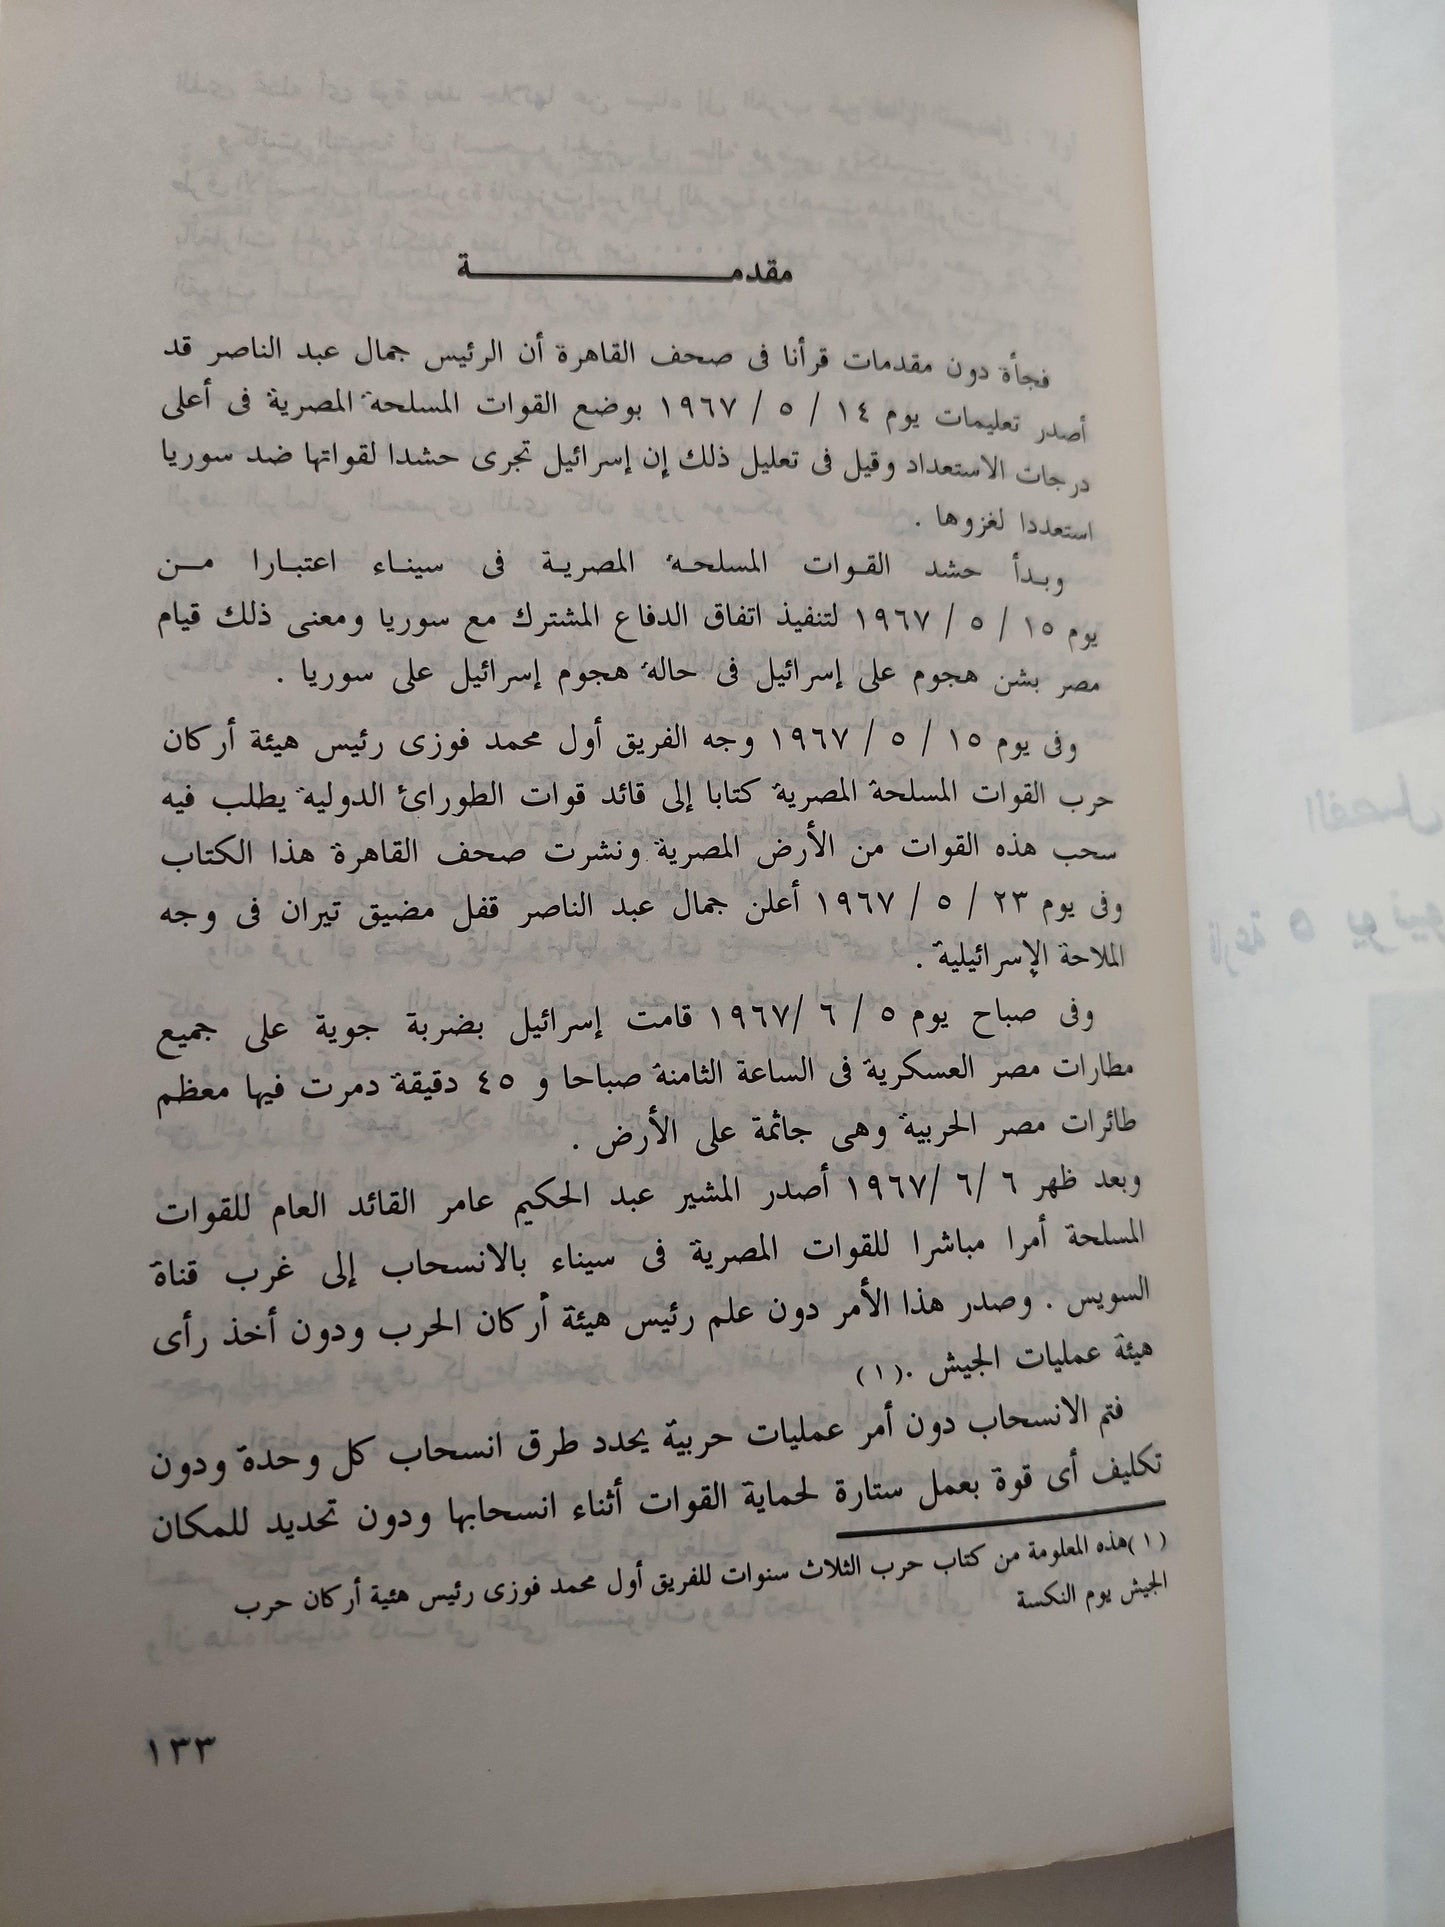 مقدمـــــــــــــــــة
فجأة دون مقدمات قرأنا فى صحف القاهرة أن الرئيس جمال عبد الناصر قد
أصدر تعليمات يوم ١٤ / ٥ / ١٩٦٧ بوضع القوات المسلحة المصرية فى أعلى
درجات الاستعداد وقيل فى تعليل ذلك إن إسرائيل تجرى حشدا لقواتها ضد سوريا
استعددا لغزوها .
وبـدأ حشد القـوات المسلحـة المصريـة فى سينـاء اعتبـارا مــن
يوم ١٥ / ٥ / ١٩٦٧ لتنفيذ اتفاق الدفاع المشترك مع سوريا ومعنى ذلك قيام
مصر بشن هجوم على إسرائيل فى حالة هجوم إسرائيل على سوريا .
وفى يوم ١٥ / ٥ / ١٩٦٧ وجه الفريق أول محمد فوزى رئيس هيئة أركان
حرب القوات المسلحة المصرية كتابا إلى قائد قوات الطورائ الدولية يطلب فيه
سحب هذه القوات من الأرض المصرية ونشرت صحف القاهرة هذا الكتاب
وفى يوم ٢٣ / ٥ / ١٩٦٧ أعلن جمال عبد الناصر قفل مضيق تيران فى وجه
الملاحة الإسرائيلية .
وفى صباح يوم ٥ / ٦ /١٩٦٧ قامت إسرائيل بضربة جوية على جميع
مطارات مصر العسكرية فى الساعة الثامنة صباحا و ٤٥ دقيقة دمرت فيها معظم
طائرات مصر الحربية وهى جاثمة على الأرض .
وبعد ظهر ٦ /٦ /١٩٦٧ أصدر المشير عبد الحكيم عامر القائد العام للقوات
المسلحة أمرا مباشرا للقوات المصرية فى سيناء بالانسحاب إلى غرب قناة
السويس . وصدر هذا الأمر دون علم رئيس هيئة أركان الحرب ودون أخذ رأى
هيئة عمليات الجيش .(١)
فتم الانسحاب دون أمر عمليات حربية يحدد طرق انسحاب كل وحدة ودون
تكليف أى قوة بعمل ستارة لحماية القوات أثناء انسحابها ودون تحديد للمكان
(١)هذه المعلومة من كتاب حرب الثلاث سنوات للفريق أول محمد فوزى رئيس هئية أركان حرب
الجيش يوم النكسة
١٣٣